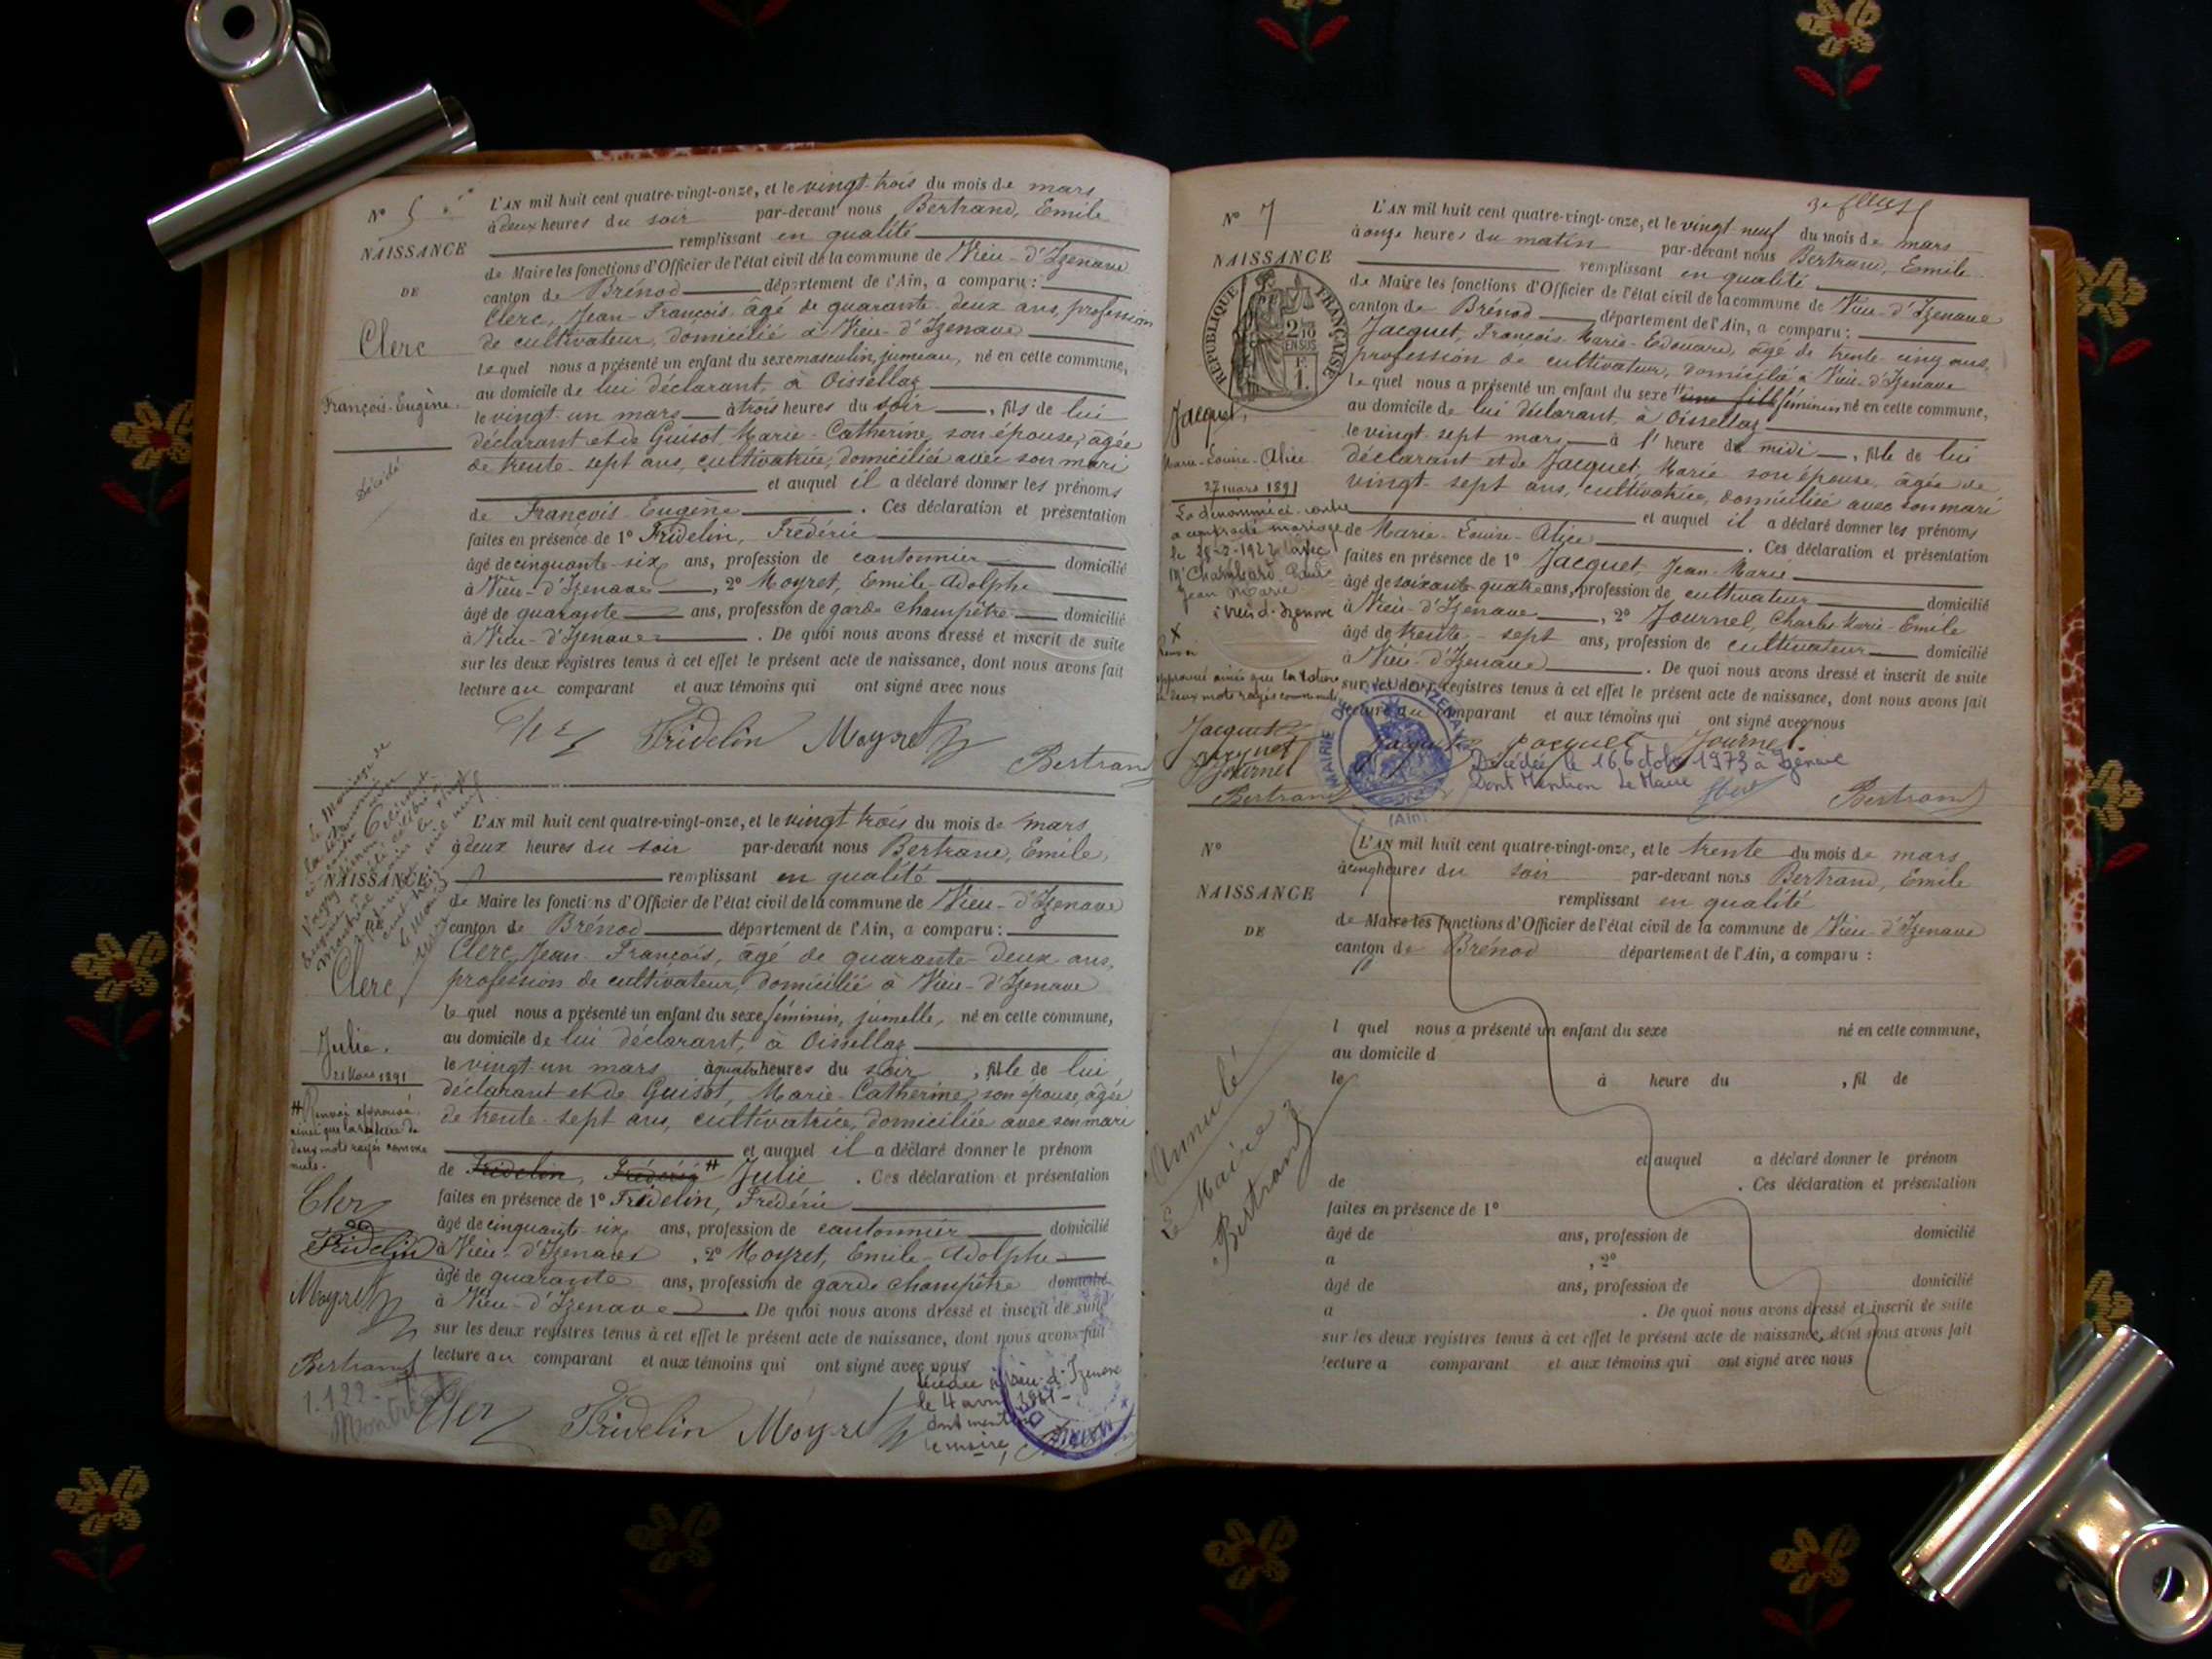 N° 5
NAISSANCE
DE
Clerc
François-Eugène
Décédé
L'AN mil huit cent quatre-vingt-onze, et le vingt-trois du mois de mars
à deux heures du soir par-devant nous Bertrand, Emile
remplissant en qualité
de Maire les fonctions d'Officier de l'état civil de la commune de Vieu-d'Izenave
canton de Brénod département de l'Ain, a comparu :
Clerc, Jean-François, âgé de quarante-deux ans, profession
de cultivateur, domicilié à Vieu-d'Izenave
lequel nous a présenté un enfant du sexe masculin, jumeau, né en cette commune,
au domicile de lui déclarant, à Oissellaz
le vingt-un mars à trois heures du soir, fils de lui
déclarant et de Guisot, Marie-Catherine, son épouse, âgée
de trente-sept ans, cultivatrice, domiciliée avec son mari
et auquel il a déclaré donner les prénoms
de François Eugène. Ces déclaration et présentation
faites en présence de 1° Fridelin, Frédéric
âgé de cinquante-six ans, profession de cantonnier domicilié
à Vieu-d'Izenave, 2° Moyret, Emile-Adolphe
âgé de quarante ans, profession de garde champêtre domicilié
à Vieu-d'Izenave. De quoi nous avons dressé et inscrit de suite
sur les deux registres tenus à cet effet le présent acte de naissance, dont nous avons fait
lecture au comparant et aux témoins qui ont signé avec nous
Clerc Fridelin Moyret
Bertrand
NAISSANCE
Clerc
Julie.
21 Mars 1891
# Renvoi approuvé
ainsi que la rature de
deux mots rayés comme
nuls.
Clerc
Fridelin
Moyret
Bertrand
1.122-
L'AN mil huit cent quatre-vingt-onze, et le vingt trois du mois de mars
à deux heures du soir par-devant nous Bertrand, Emile,
remplissant en qualité
de Maire les fonctions d'Officier de l'état civil de la commune de Vieu-d'Izenave
canton de Brénod département de l'Ain, a comparu :
Clerc, Jean-François, âgé de quarante-deux ans,
profession de cultivateur, domicilié à Vieu-d'Izenave
lequel nous a présenté un enfant du sexe féminin, jumelle, né en cette commune,
au domicile de lui déclarant, à Oissellaz
le vingt-un mars à quatre heures du soir, fille de lui
déclarant et de Guisot, Marie-Catherine, son épouse, âgée
de trente-sept ans, cultivatrice, domiciliée avec son mari
et auquel il a déclaré donner le prénom
de Fridelin, Frédéric # Julie. Ces déclaration et présentation
faites en présence de 1° Fridelin, Frédéric
âgé de cinquante-six ans, profession de cantonnier domicilié
à Vieu-d'Izenave, 2° Moyret, Emile-Adolphe
âgé de quarante ans, profession de garde champêtre domicilié
à Vieu-d'Izenave. De quoi nous avons dressé et inscrit de suite
sur les deux registres tenus à cet effet le présent acte de naissance, dont nous avons fait
lecture au comparant et aux témoins qui ont signé avec nous
Vieu-d'Izenave
le 4 avril
dont mention
le maire,
Clerc Fridelin Moyret
N° 7
NAISSANCE
RÉPUBLIQUE FRANÇAISE
2/10 EN SUS
1 F.
Jacquet,
Marie-Louise-Alice
27 mars 1891
La dénommée ci-contre
a contracté mariage
le 25-2-1922 avec
Mr Chambard Paul
Jean Marie
à Vieu d'Izenave
X
Renvoi
approuvé ainsi que la rature
de deux mots rayés comme nuls
Jacquet
Jacquet
Journel
Bertrand
L'AN mil huit cent quatre-vingt-onze, et le vingt neuf du mois de mars
à onze heures du matin par-devant nous Bertrand, Emile
remplissant en qualité
de Maire les fonctions d'Officier de l'état civil de la commune de Vieu-d'Izenave
canton de Brénod département de l'Ain, a comparu :
Jacquet, François-Marie-Edouard, âgé de trente-cinq ans,
profession de cultivateur, domicilié à Vieu-d'Izenave
lequel nous a présenté un enfant du sexe # une fille féminin né en cette commune,
au domicile de lui déclarant, à Oissellaz
le vingt-sept mars à l'heure de midi, fille de lui
déclarant et de Jacquet, Marie son épouse, âgée de
vingt-sept ans, cultivatrice, domiciliée avec son mari
et auquel il a déclaré donner les prénoms
de Marie-Louise-Alice. Ces déclaration et présentation
faites en présence de 1° Jacquet, Jean-Marie
âgé de soixante-quatre ans, profession de cultivateur domicilié
à Vieu-d'Izenave, 2° Journel, Charles-Marie-Emile
âgé de trente-sept ans, profession de cultivateur domicilié
à Vieu-d'Izenave. De quoi nous avons dressé et inscrit de suite
sur les deux registres tenus à cet effet le présent acte de naissance, dont nous avons fait
lecture au comparant et aux témoins qui ont signé avec nous
Jacquet Jacquet Journel
MAIRIE DE VIEU-D'IZENAVE
(Ain)
Décédée le 16 Octobre 1973 à Izenave
Dont Mention Le Maire
Bertrand
N°
NAISSANCE
DE
Annulé
Le Maire
Bertrand
L'AN mil huit cent quatre-vingt-onze, et le trente du mois de mars
à cinq heures du soir par-devant nous Bertrand, Emile
remplissant en qualité
de Maire les fonctions d'Officier de l'état civil de la commune de Vieu-d'Izenave
canton de Brénod département de l'Ain, a comparu :
l quel nous a présenté un enfant du sexe né en cette commune,
au domicile d
le à heure du , fil de
et auquel a déclaré donner le prénom
de . Ces déclaration et présentation
faites en présence de 1°
âgé de ans, profession de domicilié
a , 2°
âgé de ans, profession de domicilié
a . De quoi nous avons dressé et inscrit de suite
sur les deux registres tenus à cet effet le présent acte de naissance, dont nous avons fait
lecture a comparant et aux témoins qui ont signé avec nous